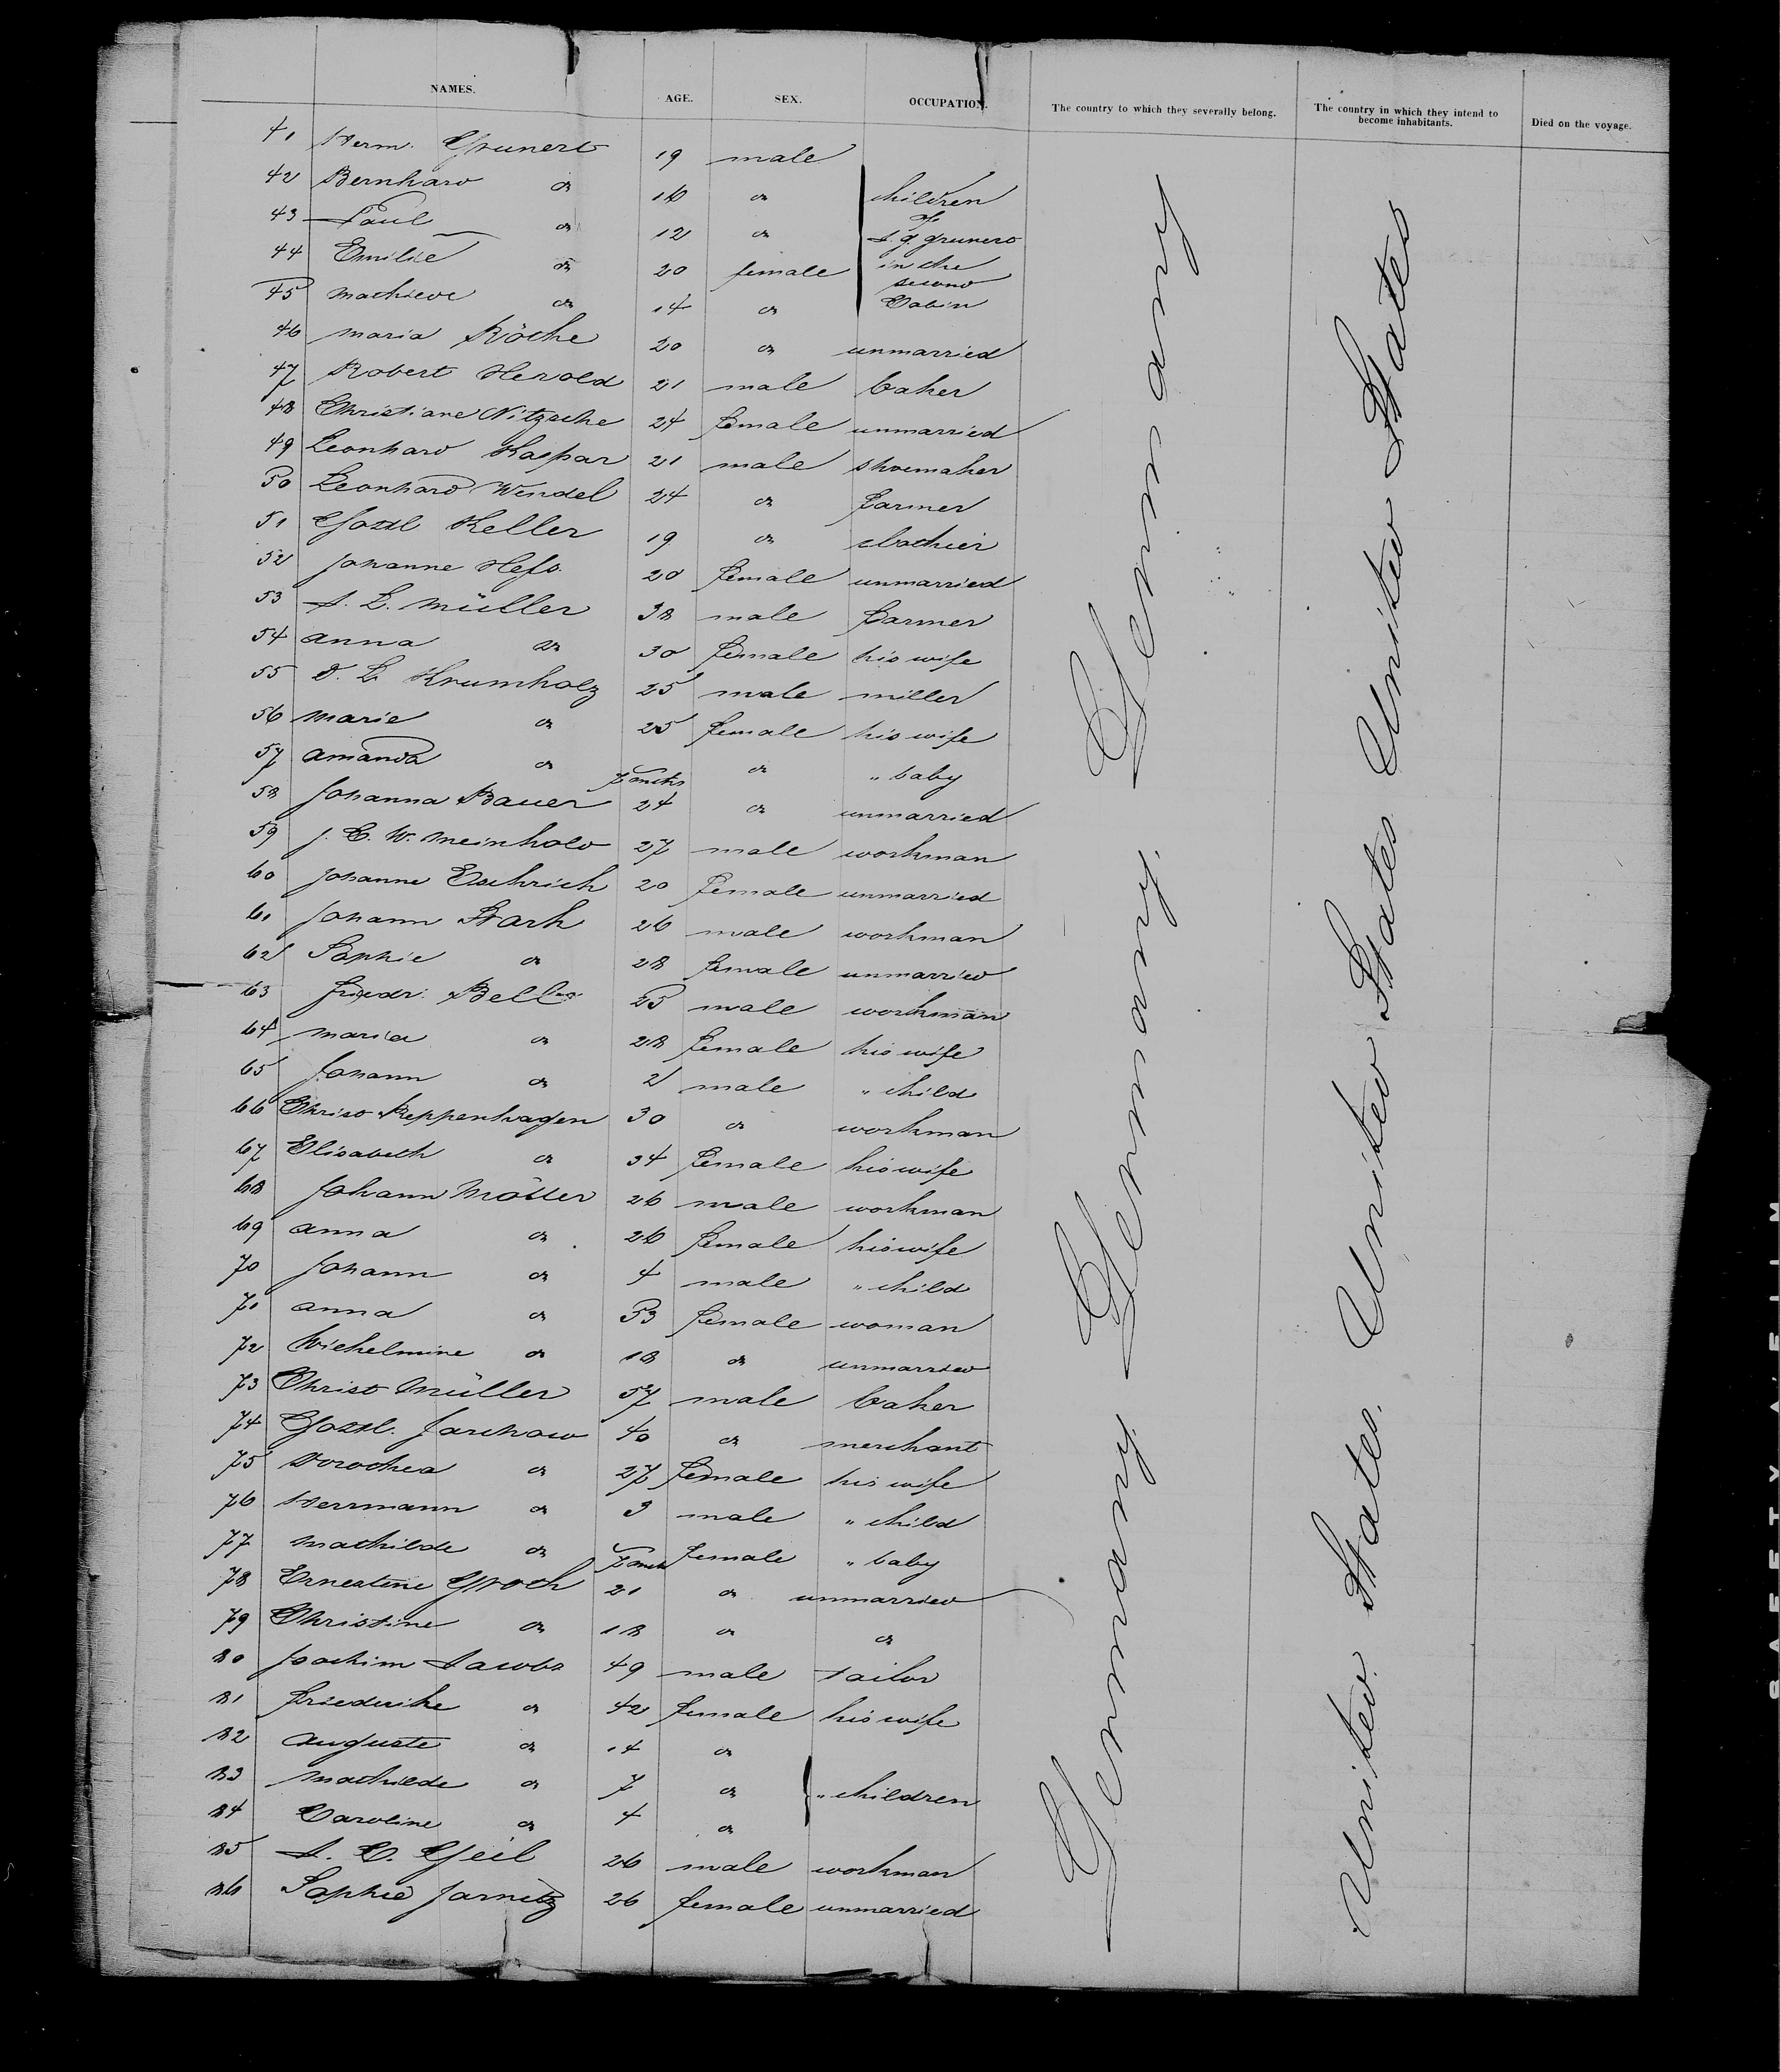 NAMES. AGE. SEX. OCCUPATION. The country to which they severally belong. The country in which they intend to become inhabitants. Died on the voyage.
41 Herm. Grunert 19 male
42 Bernhard do 16 do children
43 Paul do 12 do of J. G. Grunert
44 Emilie do 20 female in the second
45 Mathilde do 14 do Cabin
46 Maria Röthe 20 do unmarried
47 Robert Herold 21 male baker
48 Christiane Nitzsche 24 female unmarried
49 Leonhard Kaspar 21 male shoemaker
50 Leonhard Wendel 24 do farmer
51 Gottl Keller 19 do clothier
52 Johanne Hefs. 20 female unmarried
53 J. L. Müller 38 male farmer
54 Anna do 30 female his wife
55 F. L. Krumholz 25 male miller
56 Marie do 25 female his wife
57 Amanda do 7 mths do " baby
58 Johanna Bauer 24 do unmarried
59 J. C. W. Meinhold 27 male workman
60 Johanne Eschrich 20 female unmarried
61 Johann Stark 26 male workman
62 Sophie do 28 female unmarried
63 Friedr. 25 male workman
64 Maria do 28 female his wife
65 Johann do 2 male " child
66 Christ Reppenhagen 30 do workman
67 Elisabeth do 34 female his wife
68 Johann Möller 26 male workman
69 Anna do 26 female his wife
70 Johann do 4 male " child
71 Anna do 53 female woman
72 Wilhelmine do 18 do unmarried
73 Christ Müller 57 male baker
74 Gottl. Jarchow 40 do merchant
75 Dorothea do 27 female his wife
76 Herrmann do 3 male " child
77 Mathilde do 7 mths female " baby
78 Ernestine Groth 21 do unmarried
79 Christine do 18 do do
80 Joachim Jacobs 49 male tailor
81 Friederike do 42 female his wife
82 Auguste do 14 do
83 Mathilde do 7 do " children
84 Caroline do 4 do
85 J. C. Geil 26 male workman
86 Sophie Jarnitz 26 female unmarried
Germany Germany. Germany Germany
United States. United States. United States United States